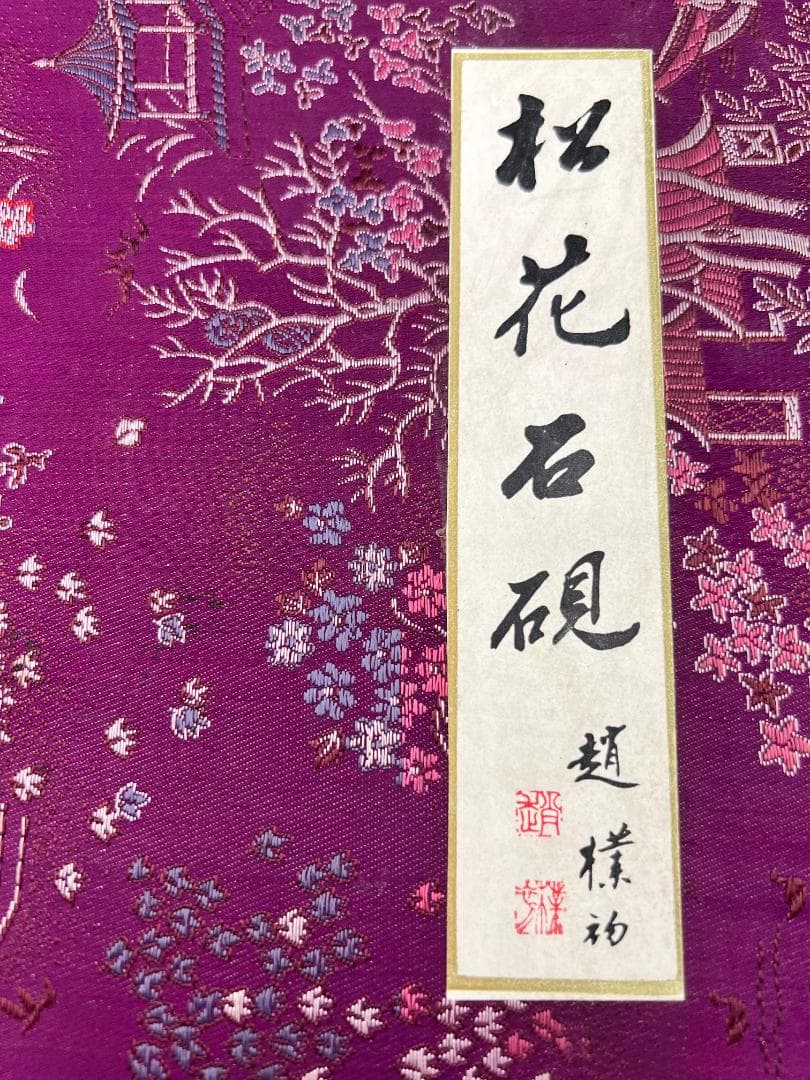 松花石硯
趙樸初
趙
樸初